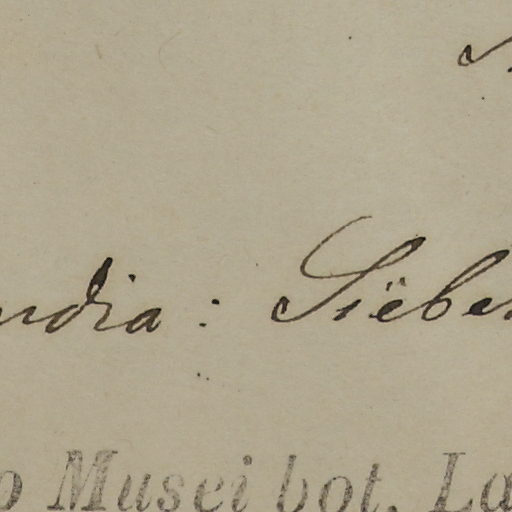 ndia : Siëbe
o Musei bot. La